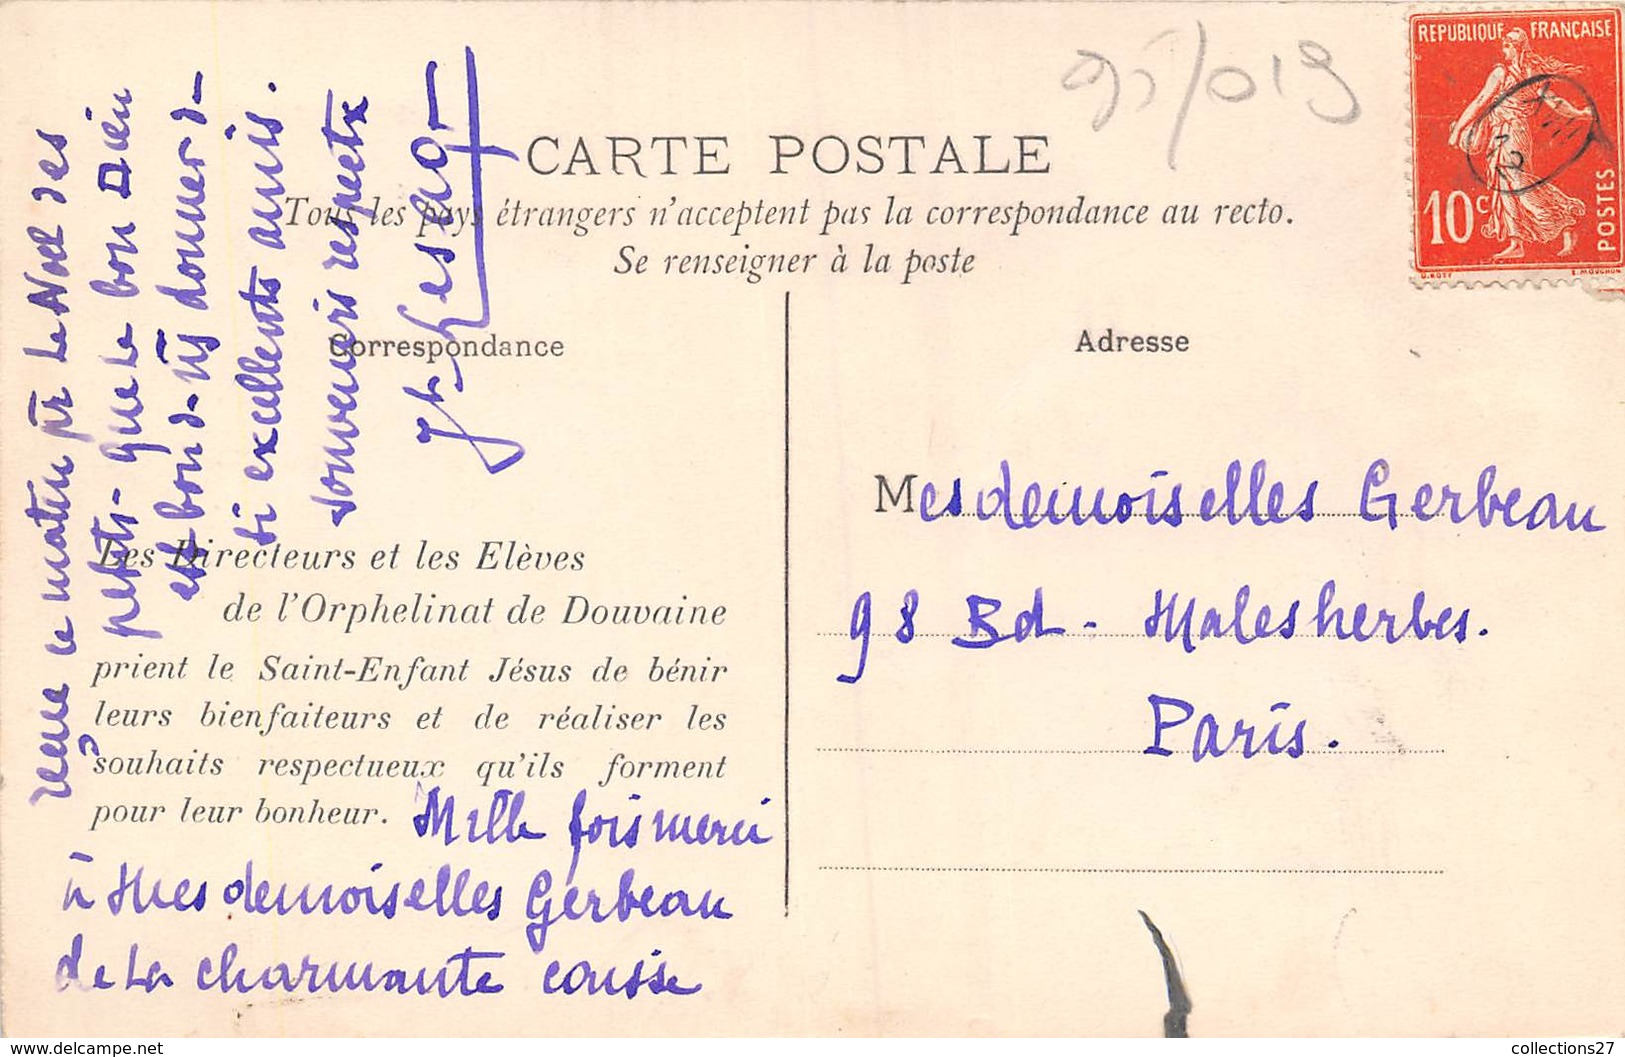 95/019
REPUBLIQUE FRANÇAISE
10c
POSTES
O. ROTY
E. MOUCHON
CARTE POSTALE
Tous les pays étrangers n'acceptent pas la correspondance au recto.
Se renseigner à la poste
Correspondance
Adresse
Mesdemoiselles Gerbeau
98 Bd - Malesherbes.
Paris.
Les Directeurs et les Elèves
de l'Orphelinat de Douvaine
prient le Saint-Enfant Jésus de bénir
leurs bienfaiteurs et de réaliser les
souhaits respectueux qu'ils forment
pour leur bonheur.
Mille fois merci
à Mesdemoiselles Gerbeau
de la charmante caisse
reçue ce matin pr le Noël des
petits - que le bon Dieu
est bon d- ns donner d-
si excellents amis.
souvenirs respectx
collections27